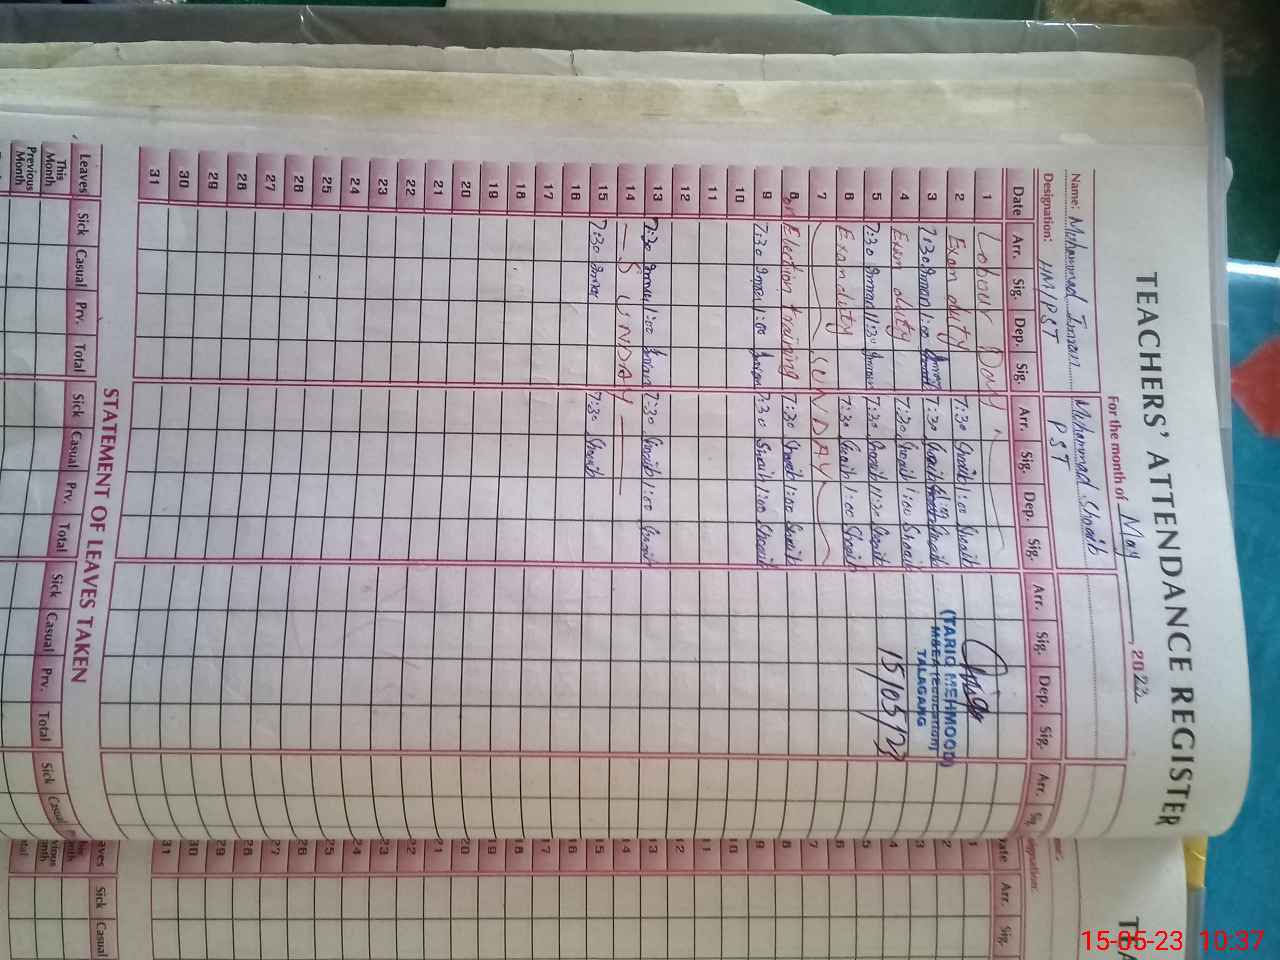 TEACHERS' ATTENDANCE REGISTER
For the month of May, 2023
Name: Muhammad Imran Muhammad Shoaib
Designation: HM/PST PST
Date Arr. Sig. Dep. Sig. Arr. Sig. Dep. Sig. Arr. Sig. Dep. Sig. Arr. Sig.
1 Labour Day
2 Exam duty 7:30 Shoaib 1:00 Shoaib
3 7:30 Imran 1:00 Imran 7:30 Shoaib Shoaib
4 Exam duty 7:30 Shoaib 1:00 Shoaib
5 7:30 Imran 11:30 Imran 7:30 Shoaib 11:30 Shoaib
6 Exam duty 7:30 Shoaib 1:00 Shoaib
7 SUNDAY
8 Election training 7:30 Shoaib 1:00 Shoaib
9 7:30 Imran 1:00 Imran 7:30 Shoaib 1:00 Shoaib
10
11
12
13 7:30 Imran 1:00 Imran 7:30 Shoaib 1:00 Shoaib
14 SUNDAY
15 7:30 Imran 7:30 Shoaib
16
17
18
19
20
21
22
23
24
25
28
27
28
29
30
31
(TARIQ MEHMOOD)
M&EA (Education)
TALAGANG
15/05/23
STATEMENT OF LEAVES TAKEN
Leaves Sick Casual Prv. Total Sick Casual Prv. Total Sick Casual Prv. Total Sick Casual
This Month
Previous Month
Date Arr. Sig.
1
2
3
4
5
6
7
8
9
10
11
12
13
14
15
16
17
18
19
20
21
22
23
24
25
28
27
28
29
30
31
Sick Casual
15-05-23 10:37